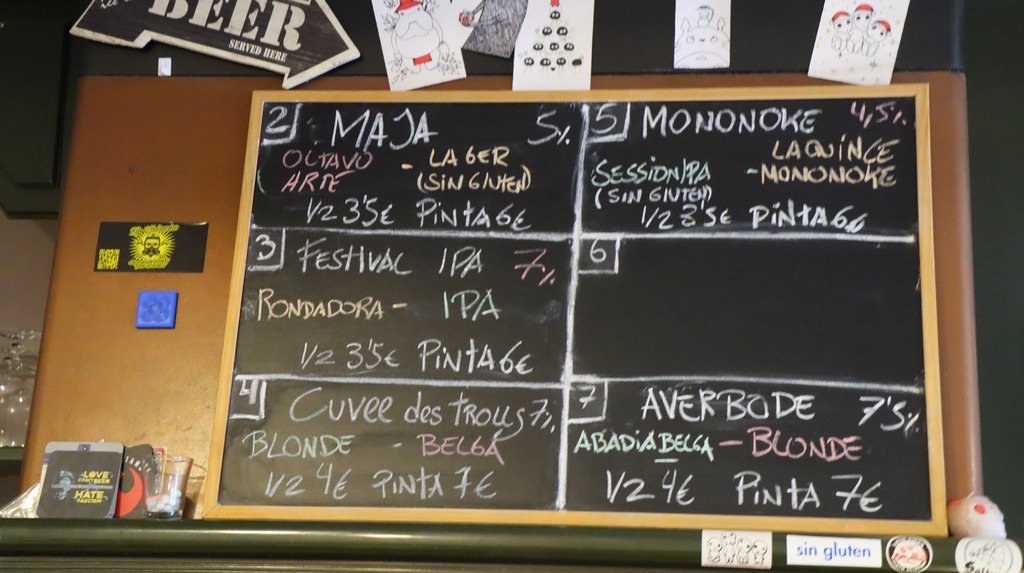 BEER
SERVED HERE
2 MAJA 5%
OCTAVO ARTE - LAGER
(SIN GLUTEN)
1/2 3'5€ PINTA 6€
3 FESTIVAL IPA 7%
RONDADORA - IPA
1/2 3'5€ PINTA 6€
4 Cuvee des Trolls 7%
BLONDE - BELGA
1/2 4€ PINTA 7€
5 MONONOKE 4,5%
SESSION IPA - LAQUINCE
(SIN GLUTEN) MONONOKE
1/2 3'5€ PINTA 6€
6
7 AVERBODE 7'5%
ABADIA BELGA - BLONDE
1/2 4€ PINTA 7€
LOVE
CRAFT BEER
HATE
FASCISM
sin gluten